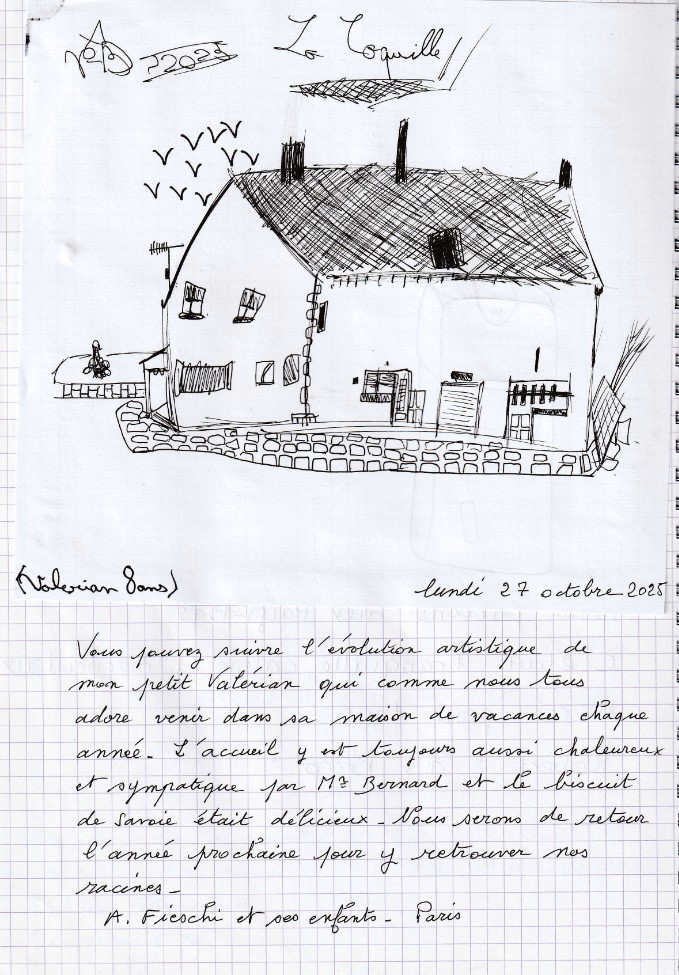 La Coquille
(Valérian 8 ans)
lundi 27 octobre 2025
Vous pouvez suivre l'évolution artistique de
mon petit Valérian qui comme nous tous
adore venir dans sa maison de vacances chaque
année. L'accueil y est toujours aussi chaleureux
et sympatique par Mr Bernard et le biscuit
de Savoie était délicieux. Nous serons de retour
l'année prochaine pour y retrouver nos
racines.
A. Fieschi et ses enfants. Paris